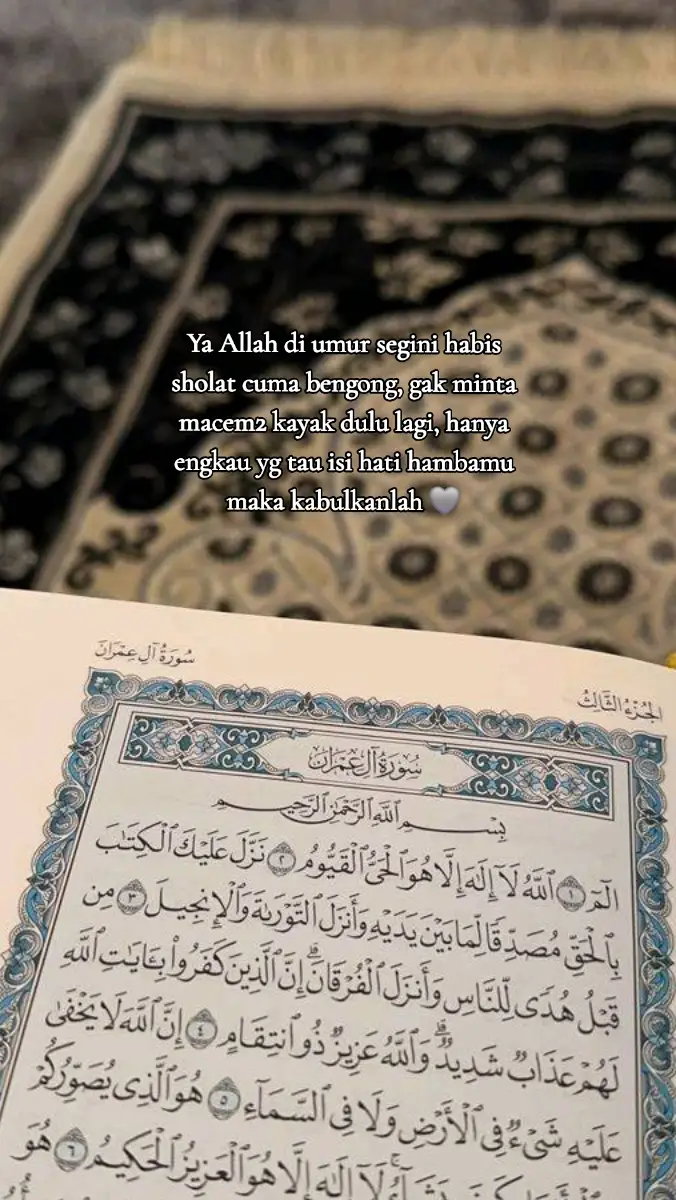 Ya Allah di umur segini habis
sholat cuma bengong, gak minta
macem2 kayak dulu lagi, hanya
engkau yg tau isi hati hambamu
maka kabulkanlah 🩶
سُورَةُ آلِ عِمْرَانَ
الجُزْءُ الثَّالِثُ
سُورَةُ آلِ عِمْرَانَ
بِسْمِ ٱللَّهِ ٱلرَّحْمَٰنِ ٱلرَّحِيمِ
الٓمٓ ١ ٱللَّهُ لَآ إِلَٰهَ إِلَّا هُوَ ٱلْحَىُّ ٱلْقَيُّومُ ٢ نَزَّلَ عَلَيْكَ ٱلْكِتَٰبَ
بِٱلْحَقِّ مُصَدِّقًا لِّمَا بَيْنَ يَدَيْهِ وَأَنزَلَ ٱلتَّوْرَىٰةَ وَٱلْإِنجِيلَ ٣ مِن
قَبْلُ هُدًى لِّلنَّاسِ وَأَنزَلَ ٱلْفُرْقَانَ ۗ إِنَّ ٱلَّذِينَ كَفَرُوا۟ بِـَٔايَٰتِ ٱللَّهِ
لَهُمْ عَذَابٌ شَدِيدٌ ۗ وَٱللَّهُ عَزِيزٌ ذُو ٱنتِقَامٍ ٤ إِنَّ ٱللَّهَ لَا يَخْفَىٰ
عَلَيْهِ شَىْءٌ فِى ٱلْأَرْضِ وَلَا فِى ٱلسَّمَآءِ ٥ هُوَ ٱلَّذِى يُصَوِّرُكُمْ
يَشَآءُ ۚ لَآ إِلَٰهَ إِلَّا هُوَ ٱلْعَزِيزُ ٱلْحَكِيمُ ٦ هُوَ